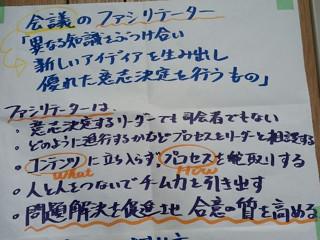 会議のファシリテーター
「異なる知識をぶつけ合い
新しいアイディアを生み出し
優れた意志決定を行うもの」
ファシリテーターは、
・意志決定するリーダーでも司会者でもない
・どのように進行するかなどプロセスをリーダーと相談する
・コンテンツに立ち入らず、プロセスを舵取りする
What How
・人と人をつないでチーム力を引き出す
・問題解決を促進させ 合意の質を高める